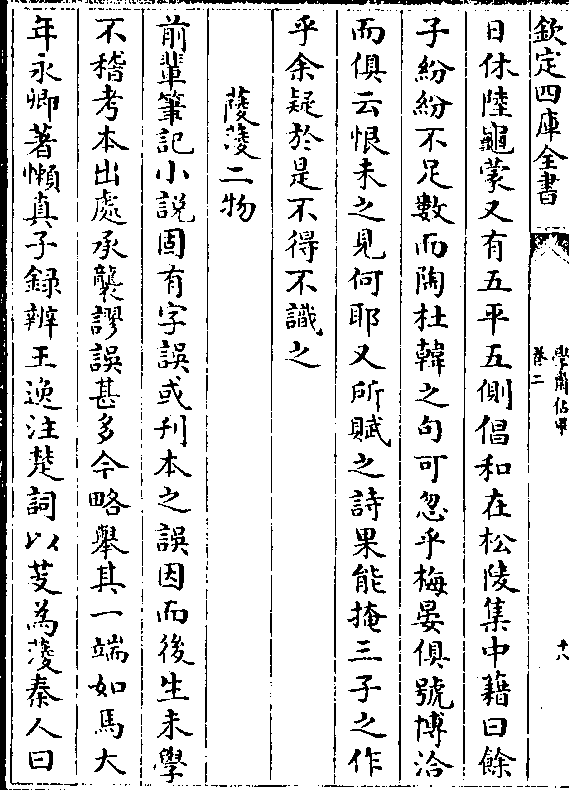 欽定四庫全書
學齋佔畢
卷二
十八
日休陸龜蒙又有五平五側倡和在松陵集中藉曰餘
子紛紛不足數而陶杜韓之句可忽乎梅晏俱號博洽
而俱云恨未之見何耶又所賦之詩果能掩三子之作
乎余疑於是不得不識之
薐蔆二物
前輩筆記小説固有字誤或刋本之誤因而後生未學
不稽考本出處承襲謬誤甚多今略舉其一端如馬大
年永卿著懶真子録辨王逸注楚詞以芰為蔆秦人曰